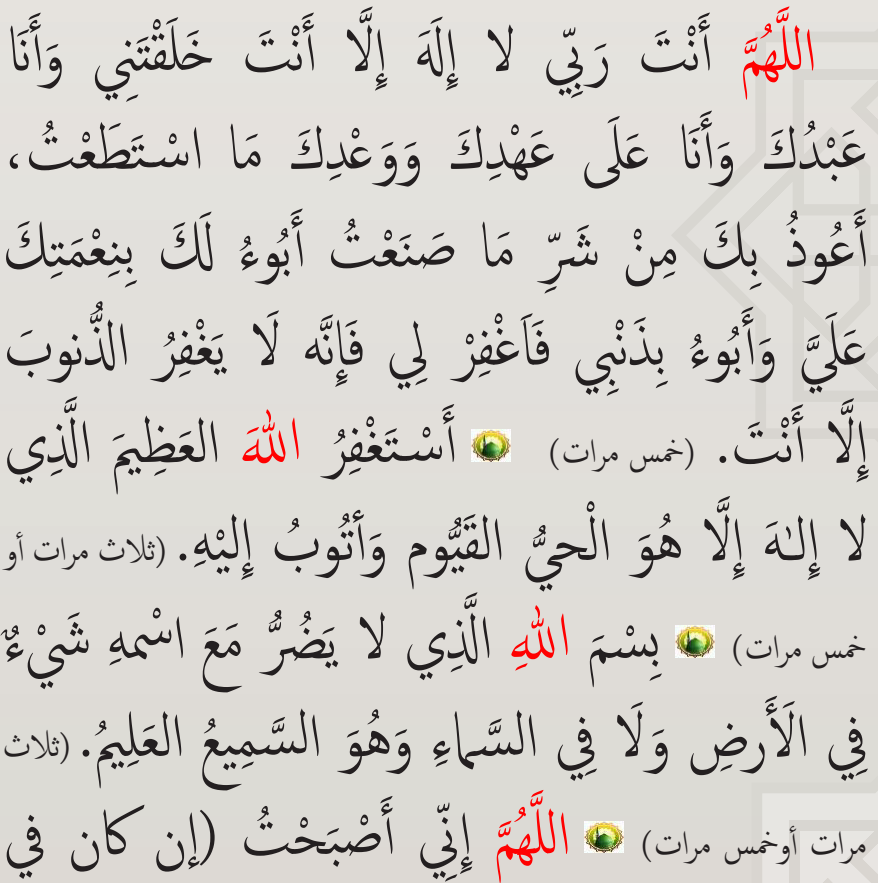 اللَّهُمَّ أَنْتَ رَبِّي لا إِلَهَ إِلَّا أَنْتَ خَلَقْتَنِي وَأَنَا
عَبْدُكَ وَأَنَا عَلَى عَهْدِكَ وَوَعْدِكَ مَا اسْتَطَعْتُ،
أَعُوذُ بِكَ مِنْ شَرِّ مَا صَنَعْتُ أَبُوءُ لَكَ بِنِعْمَتِكَ
عَلَيَّ وَأَبُوءُ بِذَنْبِي فَاَغْفِرْ لِي فَإِنَّه لَا يَغْفِرُ الذُّنوبَ
إِلَّا أَنْتَ. (خمس مرات) أَسْتَغْفِرُ اللهَ العَظِيمَ الَّذِي
لا إِلـٰهَ إِلَّا هُوَ الْحيُّ القَيُّوم وَأتُوبُ إِليْهِ. (ثلاث مرات أو
خمس مرات) بِسْمَ اللهِ الَّذِي لا يَضُرُّ مَعَ اسْمهِ شَيْءٌ
فِي الَأَرضِ وَلَا فِي السَّماءِ وَهُوَ السَّمِيعُ العَلِيمُ. (ثلاث
مرات أوخمس مرات) اللَّهُمَّ إِنِّي أَصْبَحْتُ (إن كان في